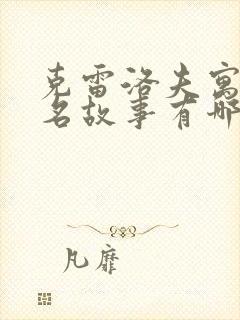 克雷洛夫寓
名故事有哪
凡靡